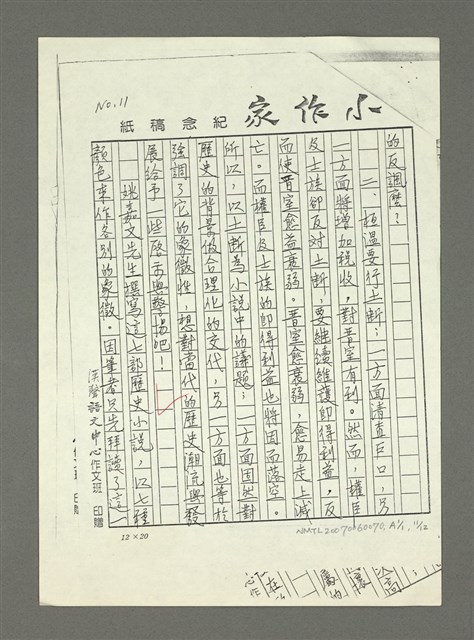 No.11
小作家
紀念稿紙
的反調麼？
二、桓溫要行土斷：一方面清查戶口，另
一方面將增加稅收，對晉室有利。然而，權臣
及士族卻反對土斷，要繼續維護即得利益，反
而使晉室愈益衰弱。晉室愈衰弱，愈易走上滅
亡。而權臣及士族的即得利益也將因而落空。
所以，以土斷為小說中的議題；一方面固然對
歷史的背景做合理化的交代，另一方面也等於
強調了它的象徵性，想對當代的歷史潮流與發
展給予一些啓示與警惕吧！
姚嘉文先生撰寫這七部歷史小說，以七種
顏色來作各別的象徵。因筆者只先拜讀了這一
漢聲語文中心作文班 印贈
12×20
NMTL20070060070, A1/1, 11/12